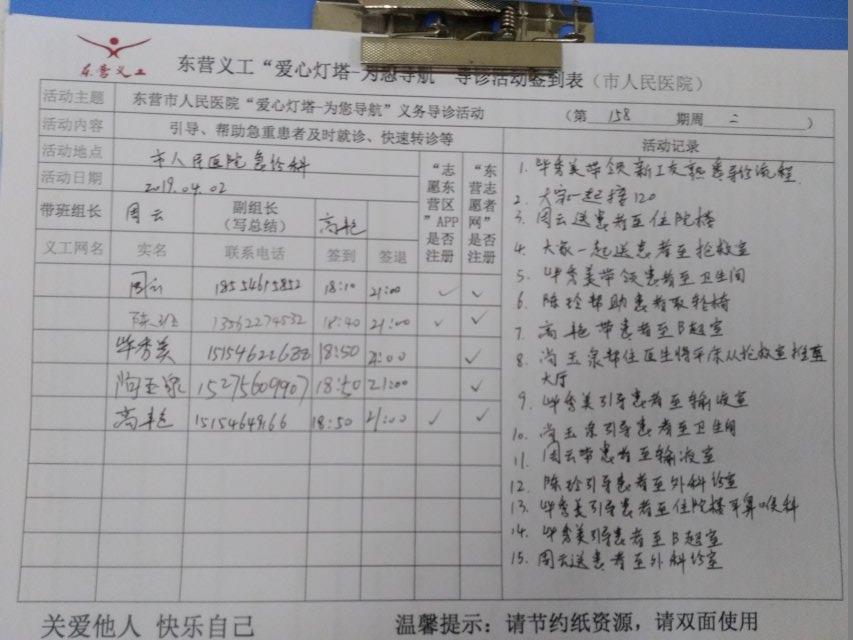 东营义工
东营义工“爱心灯塔-为您导航”导诊活动签到表（市人民医院）
活动主题 东营市人民医院“爱心灯塔-为您导航”义务导诊活动 （第 158 期周 二 ）
活动内容 引导、帮助急重患者及时就诊、快速转诊等
活动地点 市人民医院急诊科
活动日期 2019.04.02
带班组长 周云 副组长（写总结） 高艳
“志愿东营区”APP是否注册
“东营志愿者网”是否注册
义工网名 实名 联系电话 签到 签退
周云 18554615852 18:10 21:00 ✓ ✓
陈玲 13562274532 18:40 21:00 ✓ ✓
毕秀美 15154622688 18:50 21:00 ✓
尚玉泉 15275609907 18:50 21:00 ✓
高艳 15154649166 18:50 21:00 ✓ ✓
活动记录
1. 毕秀美带领新工友熟悉导诊流程
2. 大家一起接120
3. 周云送患者至住院楼
4. 大家一起送患者至抢救室
5. 毕秀美带领患者至卫生间
6. 陈玲帮助患者取轮椅
7. 高艳带患者至B超室
8. 尚玉泉帮住医生将平床从抢救室推至
大厅
9. 毕秀美引导患者至输液室
10. 尚玉泉引导患者至卫生间
11. 周云带患者至输液室
12. 陈玲引导患者至外科诊室
13. 毕秀美引导患者至住院楼耳鼻喉科
14. 毕秀美引导患者至B超室
15. 周云送患者至外科诊室
关爱他人 快乐自己 温馨提示：请节约纸资源，请双面使用